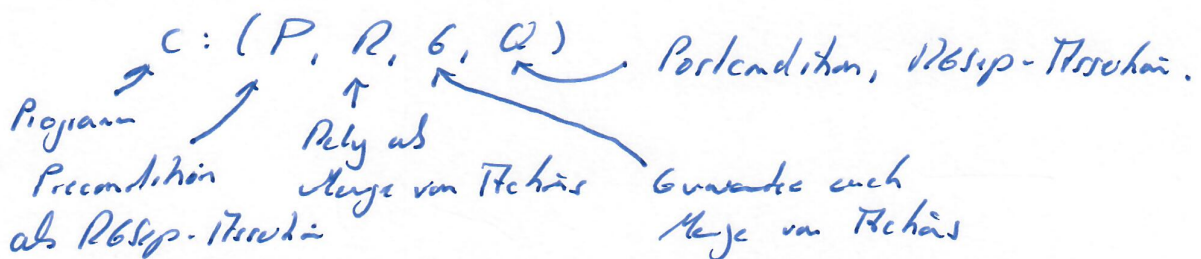 C : ( P, R, G, Q )
Postcondition, RGSep-Assertion.
Programm
Precondition
als RGSep-Assertion
Rely als
Menge von Actions
Guarantee auch
Menge von Actions